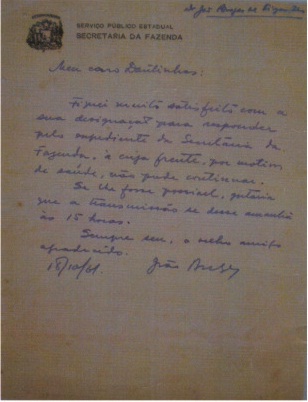 Dr José Borges de
SERVIÇO PÚBLICO ESTADUAL
SECRETARIA DA FAZENDA
Meu caro Dantinhas:
Fiquei muito satisfeito com a
sua designação para responder
pelo expediente da Secretaria da
Fazenda, à cuja frente, por motivo
de saúde, não pude continuar.
Se lhe fosse possível, gostaria
que a transmissão se desse amanhã
às 15 horas.
Sempre seu, o velho amigo
agradecido.
18/10/61 João